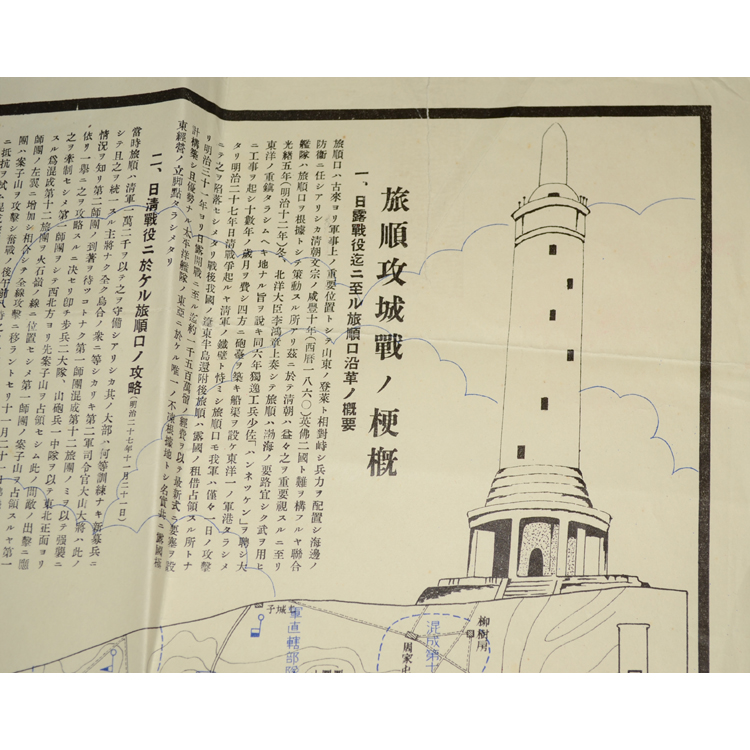 旅順攻城戰ノ梗槪
一、日露戰役迄ニ至ル旅順口沿革ノ概要
旅順口ハ古來ヨリ軍事上ノ重要位置トシテ山東ノ登萊ト相對峙シ兵力ヲ配置シ海邊ノ
防衞ニ任シアリシカ清朝文宗ノ咸豐十年(西曆一八六〇)英佛二國ト難ヲ構フルヤ聯合
艦隊ハ旅順口ヲ根據トシテ策動スル所アリ茲ニ於テ清朝ハ益々之ヲ重要視スルニ至リ
光緖五年(明治十二年)冬、北洋大臣李鴻章上奏シテ旅順ハ渤海ノ要路宜シク武ヲ用ヒ
東洋ノ重鎭タラシムヘキ地ナル旨ヲ說キ同六年獨逸工兵少佐「ハンネッケン」ヲ聘シ大
ニ工事ヲ起シ十數年ノ歲月ヲ費シ四方ニ砲臺ヲ築キ船渠ヲ設ケ東洋一ノ軍港タラシメ
タリ明治二十七年日清戰爭起ルヤ清軍ノ鐵壁ト恃ミシ旅順口モ我軍ハ僅々一日ノ攻擊
ニテ之ヲ陷落セシメタリ戰後我國ノ遼東半島還附後旅順ハ露國ノ租借占領スル所トナ
リ明治三十一年ヨリ日露開戰ニ至ル迄約一千五百萬留ノ經費ヲ以テ最新式ノ要塞ヲ設
計構築シ且優勢ナル太平洋艦隊ノ東亞ニ於ケル唯一ノ不凍根據地トシ名實共ニ露國極
東經營ノ立脚點タラシメタリ
二、日清戰役ニ於ケル旅順口ノ攻略(明治二十七年十一月二十一日)
當時旅順ハ清軍一萬二千ヲ以テ之ヲ守備シアリシカ其ノ大部ハ何等訓練ナキ新募兵ニ
シテ且之ヲ統一スル主將ナク全ク烏合ノ衆ニ等シカリキ第二軍司令官大山大將ハ此ノ
情況ヲ知リ第二師團ノ到著ヲ待ツコトナク第一師團混成第十二旅團ノミヲ以テ强襲ニ
依リ一擧ニ之ヲ攻略スルニ決セリ卽チ步兵二大隊、山砲兵一中隊ヲ以テ東北正面ヨリ
之ヲ牽制セシメ第一師團ヲシテ西北方ヨリ先案子山ヲ占領セシム此ノ間敵ノ出擊ニ應
スル爲混成第十二旅團ヲ火石嶺ノ線ニ位置セシメ第一師團ノ案子山ヲ占領スルヤ第一
師團ノ左翼ニ增加シ相合シテ全線攻擊ニ移ラントセリ十一月二十一日
團ハ案子山ヲ攻擊シ奮戰ノ後午前八時
ニ抵抗ヲ試ミ
土城子
軍直轄部隊
混成第十
周家屯
柳樹房